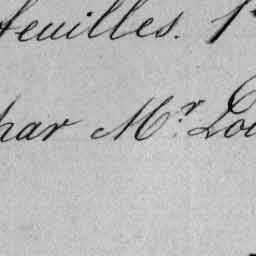 feuilles.
par Mr. Lou